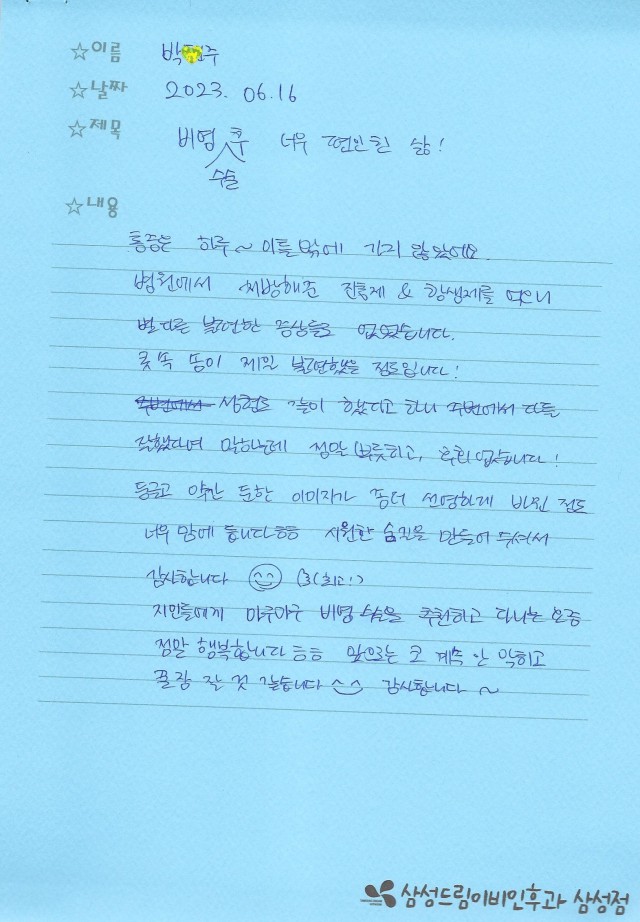 ☆이름 박 주
☆날짜 2023. 06.16
☆제목 비염 수술 후 너무 편안한 삶!
☆내용
통증은 하루~이틀밖에 가지 않았어요.
병원에서 처방해준 진통제 & 항생제를 먹으니
별다른 불편한 증상들도 없었습니다.
콧속 솜이 제일 불편했을 정도입니다!
주변에서 성형도 같이 했다고 하니 주변에서 다들
잘했다며 말하는데 정말 뿌듯하고, 후회 없습니다!
둥글고 약간 둔한 이미지가 좀더 선명하게 바뀐 정도
너무 맘에 듭니다ㅎㅎ 시원한 숨길을 만들어 주셔서
감사합니다 (최고!)
지인들에게 마구마구 비염 수술을 추천하고 다니는 요즘
정말 행복합니다ㅎㅎ 앞으로는 코 계속 안 막히고
꿀잠 잘 것 같습니다^^ 감사합니다~
삼성드림이비인후과 삼성점